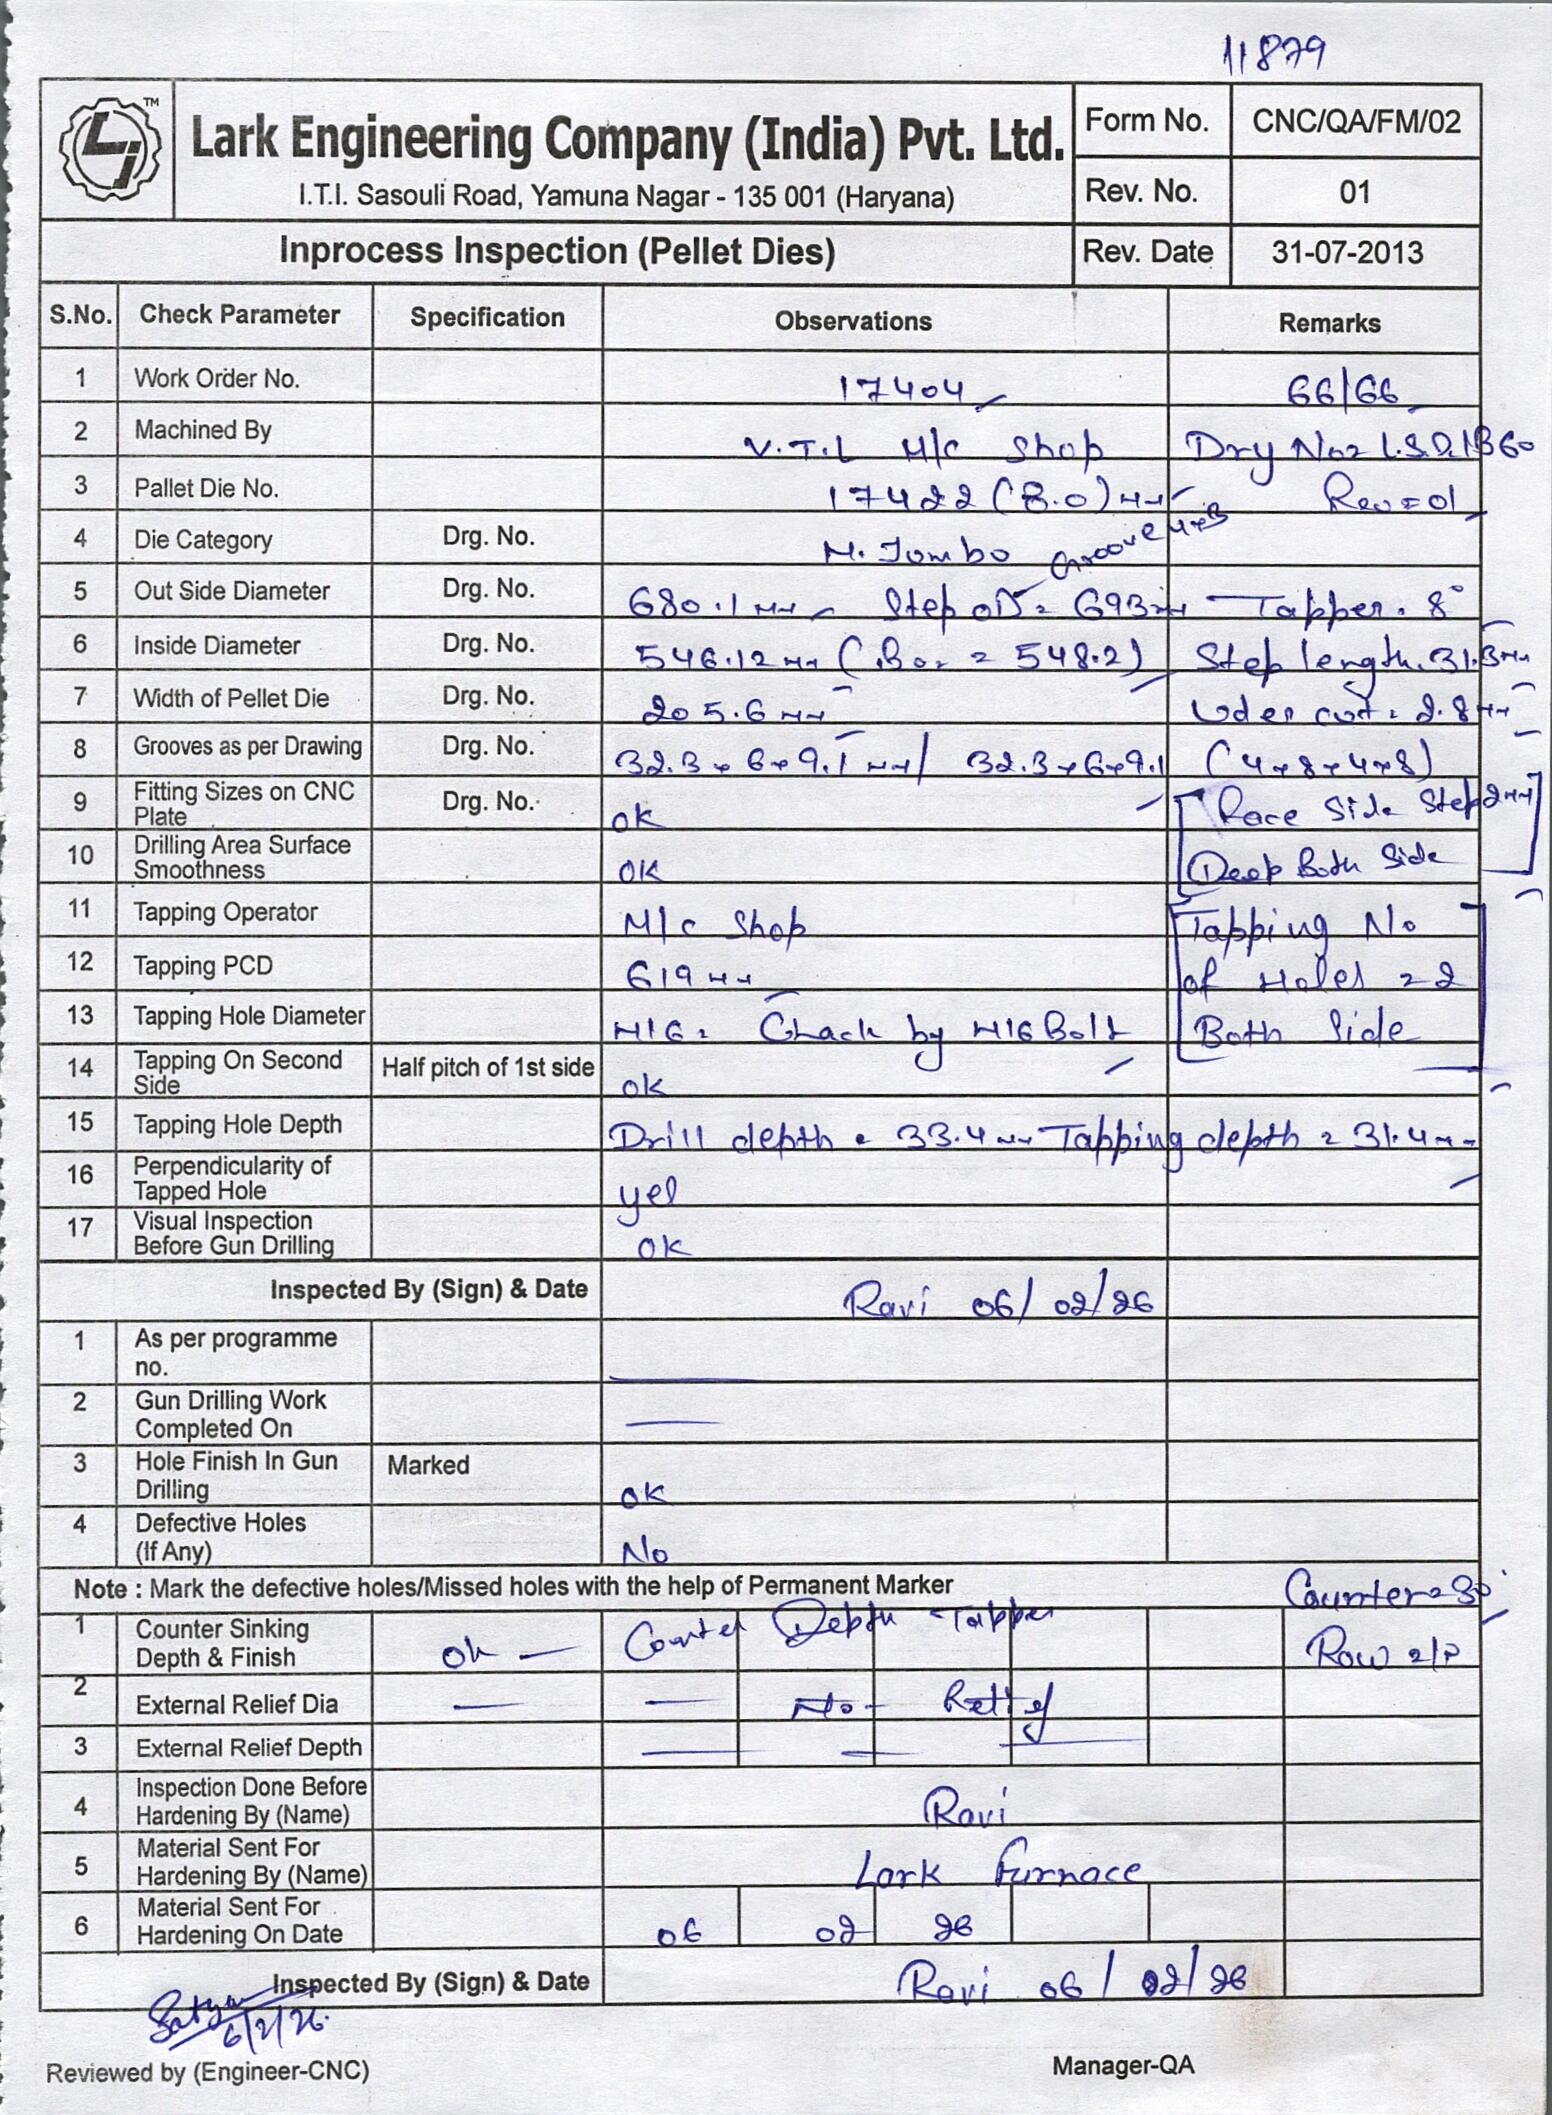 11879
LJ TM
Lark Engineering Company (India) Pvt. Ltd.
I.T.I. Sasouli Road, Yamuna Nagar - 135 001 (Haryana)
Form No. CNC/QA/FM/02
Rev. No. 01
Inprocess Inspection (Pellet Dies) Rev. Date 31-07-2013
S.No. Check Parameter Specification Observations Remarks
1 Work Order No. 17404 66/66
2 Machined By V.T.L M/c Shop Dry No=
3 Pallet Die No. 17422 (8.0) mm Rev=01
4 Die Category Drg. No. M. Jombo Groove
5 Out Side Diameter Drg. No. 680.1 mm Step OD= 693mm Tapper. 8°
6 Inside Diameter Drg. No. 546.12 mm (Bor = 548.2) Step length. 31.3mm
7 Width of Pellet Die Drg. No. 205.6 mm Uder cut= 2.8mm
8 Grooves as per Drawing Drg. No. 32.3 x 6 x 9.1 mm / 32.3 x 6 x 9.1 (4x8x4x8)
9 Fitting Sizes on CNC Plate Drg. No. ok Race Side Step 2mm
10 Drilling Area Surface Smoothness OK Deep Both Side
11 Tapping Operator M/c Shop Tapping No
12 Tapping PCD 619 mm of Holes = 2
13 Tapping Hole Diameter M16= Chack by M16 Bolt Both Side
14 Tapping On Second Side Half pitch of 1st side ok
15 Tapping Hole Depth Drill depth = 33.4 mm Tapping depth = 31.4mm
16 Perpendicularity of Tapped Hole yes
17 Visual Inspection Before Gun Drilling OK
Inspected By (Sign) & Date Ravi 06/02/26
1 As per programme no.
2 Gun Drilling Work Completed On
3 Hole Finish In Gun Drilling Marked OK
4 Defective Holes (If Any) No
Note : Mark the defective holes/Missed holes with the help of Permanent Marker Counter=30°
1 Counter Sinking Depth & Finish Ok Counter Depth Tapper Row
2 External Relief Dia No Relief
3 External Relief Depth
4 Inspection Done Before Hardening By (Name) Ravi
5 Material Sent For Hardening By (Name) Lark Furnace
6 Material Sent For Hardening On Date 06 02 26
Inspected By (Sign) & Date Ravi 06/02/26
Satya 6/2/26
Reviewed by (Engineer-CNC) Manager-QA